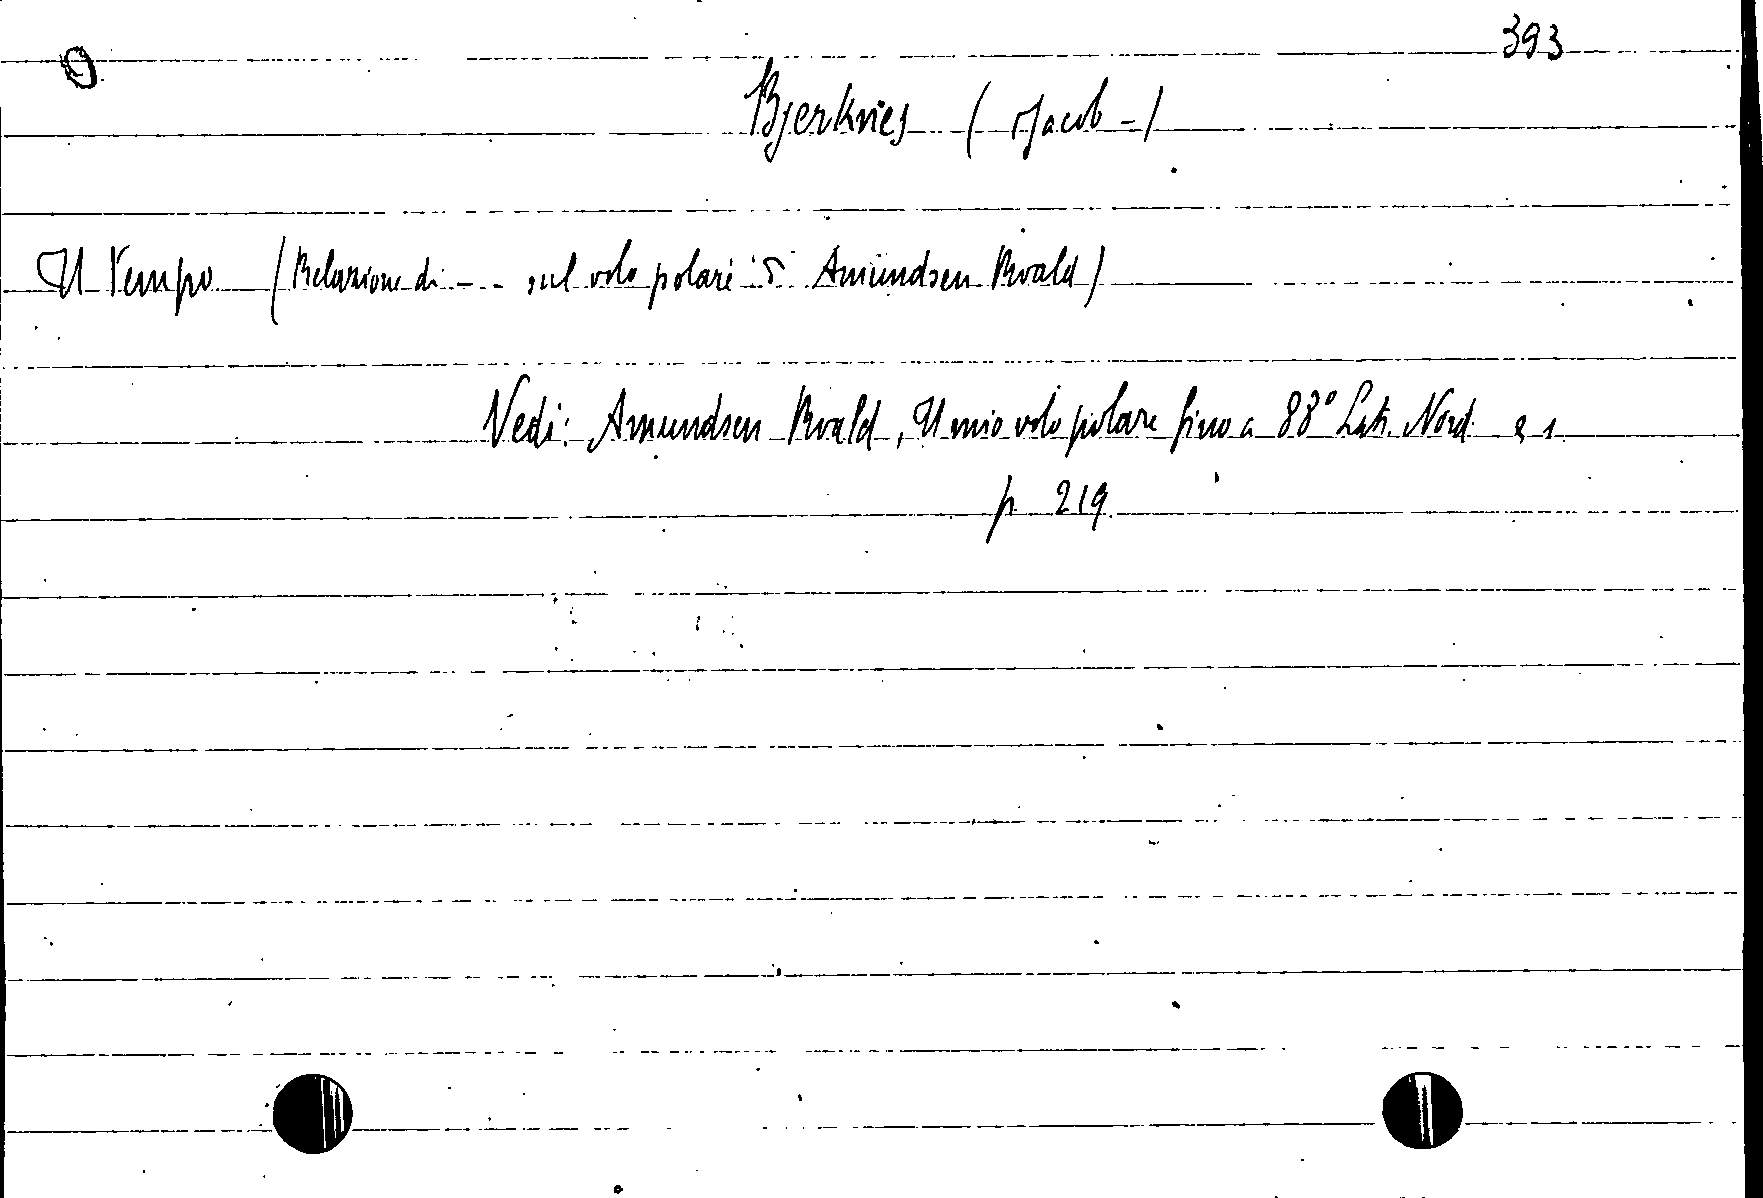 393
Bjerknes (Jacob -)
Il Tempo (Relazione di --- sul volo polare di Amundsen Roald)
Vedi: Amundsen Roald, Il mio volo polare fino a 88° Lat. Nord.
p. 219.